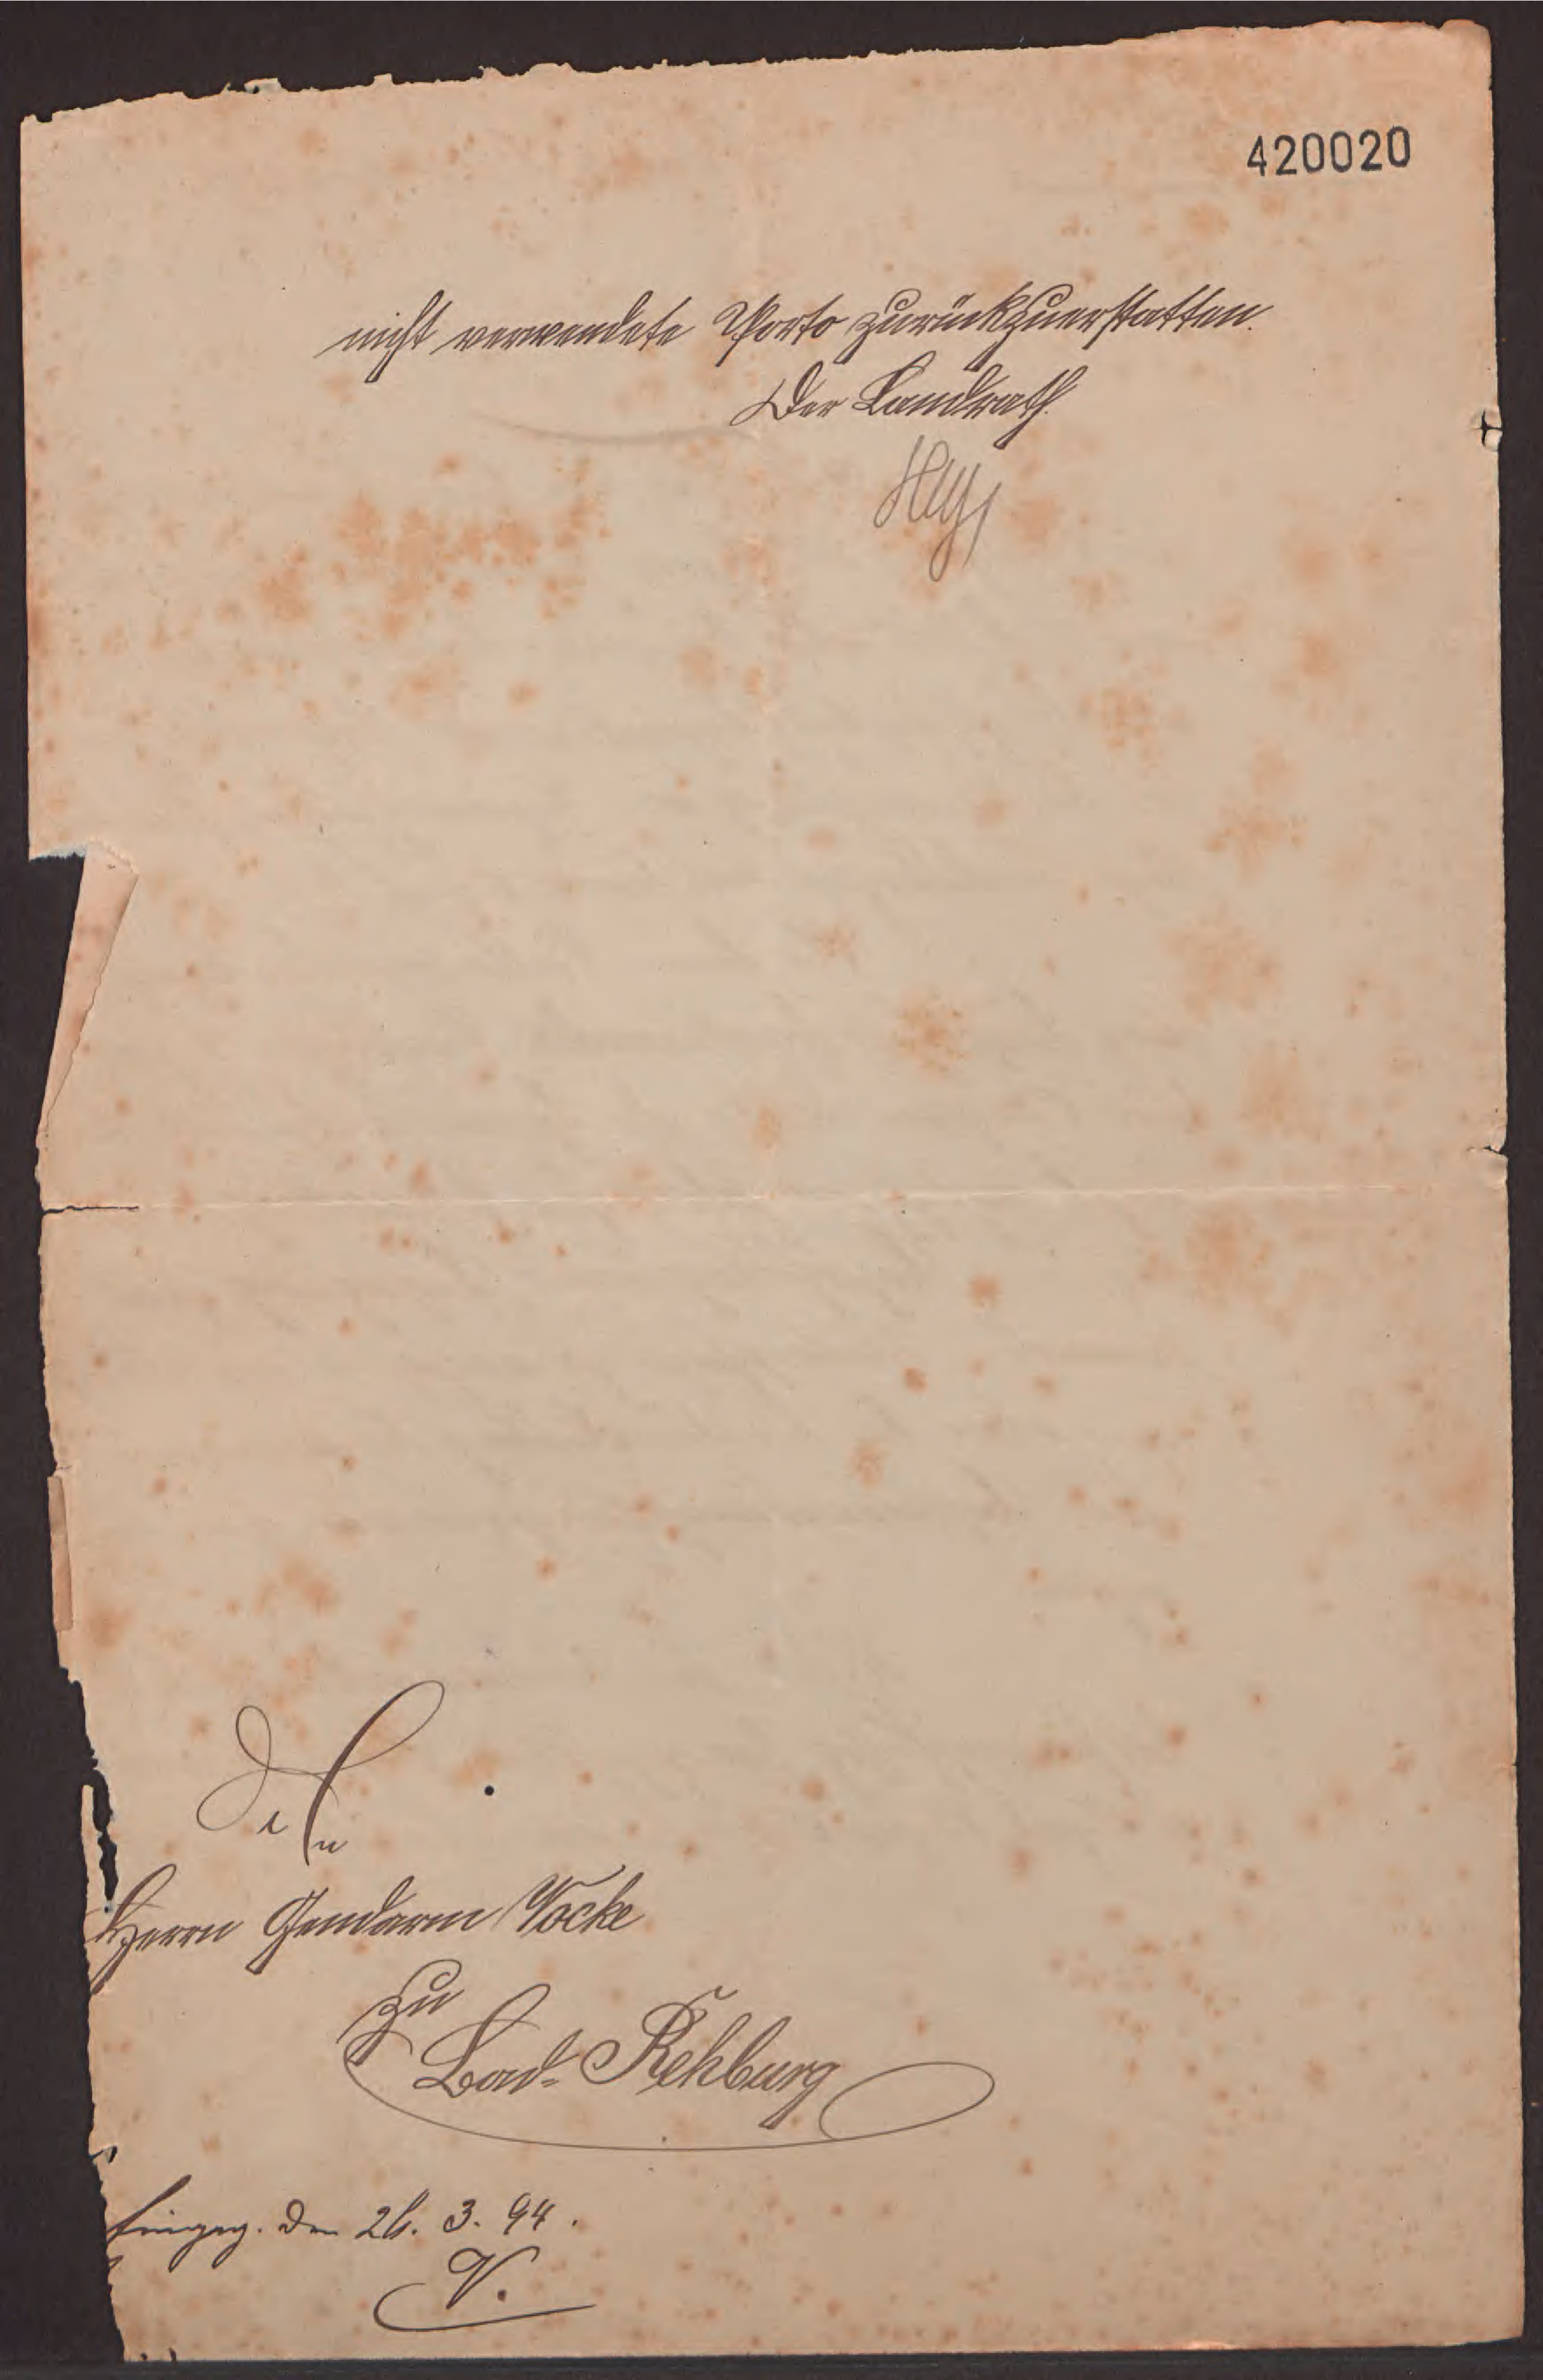 420020
nicht verwendete Porto zurückzuerstatten.
Der Landrath.
Herrn Gendarm Vocke
zu
Bad-Rehburg
Eingeg. den 26. 3. 94.
V.